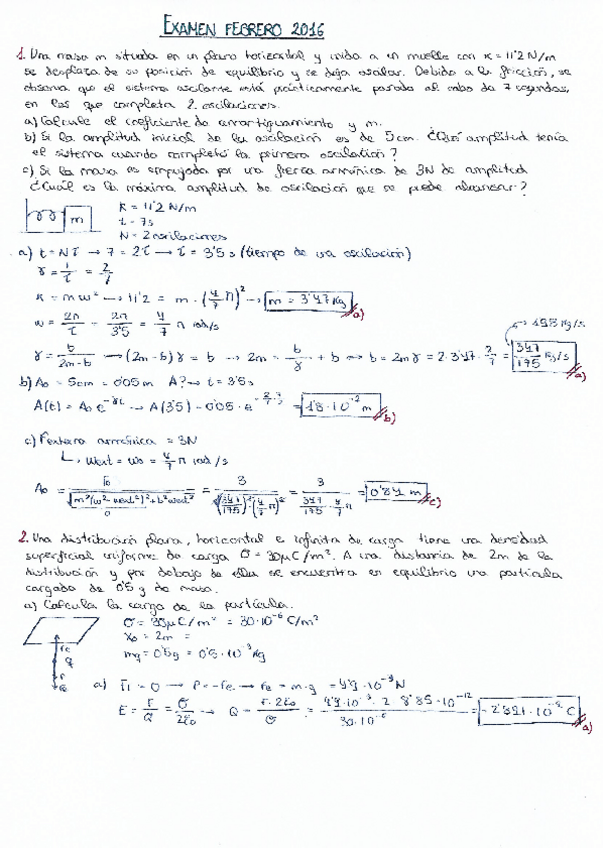 EXAMEN FEBRERO 2016
1. Una masa m situada en un plano horizontal y unida a un muelle con K = 11'2 N/m
se desplaza de su posición de equilibrio y se deja oscilar. Debido a la fricción, se
observa que el sistema oscilante está prácticamente parado al cabo de 7 segundos,
en los que completa 2 oscilaciones.
a) Calcule el coeficiente de amortiguamiento y m.
b) Si la amplitud inicial de la oscilación es de 5 cm. ¿Qué amplitud tenía
el sistema cuando completó la primera oscilación?
c) Si la masa es empujada por una fuerza armónica de 3N de amplitud
¿Cuál es la máxima amplitud de oscilación que se puede alcanzar?
m
K = 11'2 N/m
t = 7s
N = 2 oscilaciones
a) t = Nτ → 7 = 2τ → τ = 3'5 s (tiempo de una oscilación)
γ = 1/τ = 2/7
K = m ω² → 11'2 = m · (4/7 π)² → m = 3'47 Kg a)
ω = 2π/τ = 2π/3'5 = 4/7 π rad/s
γ = b/2m-b → (2m-b)γ = b → 2m = b/γ + b → b = 2mγ = 2·3'47·2/7 = 347/175 Kg/s a)
1'98 Kg/s
b) A₀ = 5cm = 0'05 m A? → t = 3'5 s
A(t) = A₀ e^-γt → A(3'5) = 0'05 · e = 1'8·10⁻² m b)
c) Fexterna armónica = 3N
↳ ωext = ω₀ = 4/7 π rad/s
A₀ = F₀/√(m²(ω²-ωext²)²+b²ωext²) = 3/√((347/175)²·(4/7 π)²) = 3/(347/175 · 4/7 π) = 0'84 m c)
0
2. Una distribución plana, horizontal e infinita de carga tiene una densidad
superficial uniforme de carga σ = 30μC/m². A una distancia de 2m de la
distribución y por debajo de ella se encuentra en equilibrio una partícula
cargada de 0'5 g de masa.
a) Calcula la carga de la partícula.
σ = 30μC/m² = 30·10⁻⁶ C/m²
x₀ = 2m =
mq = 0'5g = 0'5·10⁻³ Kg
a) = 0 → P = -Fe → Fe = m·g = 4'9·10⁻³ N
E = F/Q = σ/2ε₀ → Q = F·2ε₀/σ = 4'9·10⁻³·2·8'85·10⁻¹²/30·10⁻⁶ = C a)